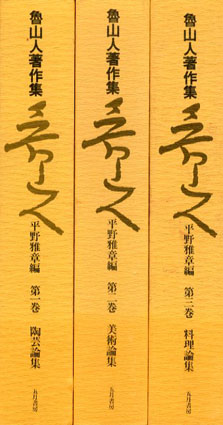 魯山人著作集
平野雅章編 第一巻 陶芸論集
五月書房
魯山人著作集
平野雅章編 第二巻 美術論集
五月書房
魯山人著作集
平野雅章編 第三巻 料理論集
五月書房